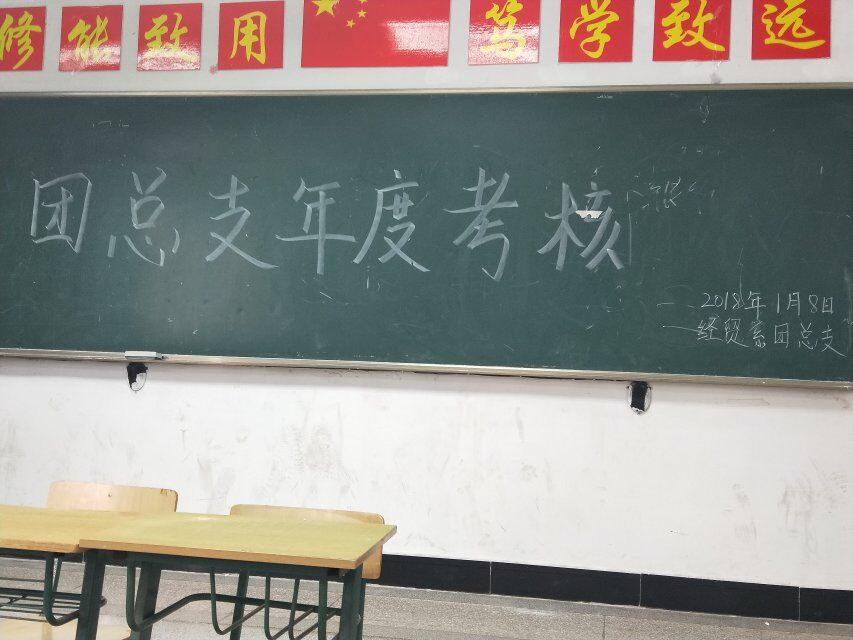 修能致用 笃学致远
团总支年度考核
2018年1月8日
经贸系团总支